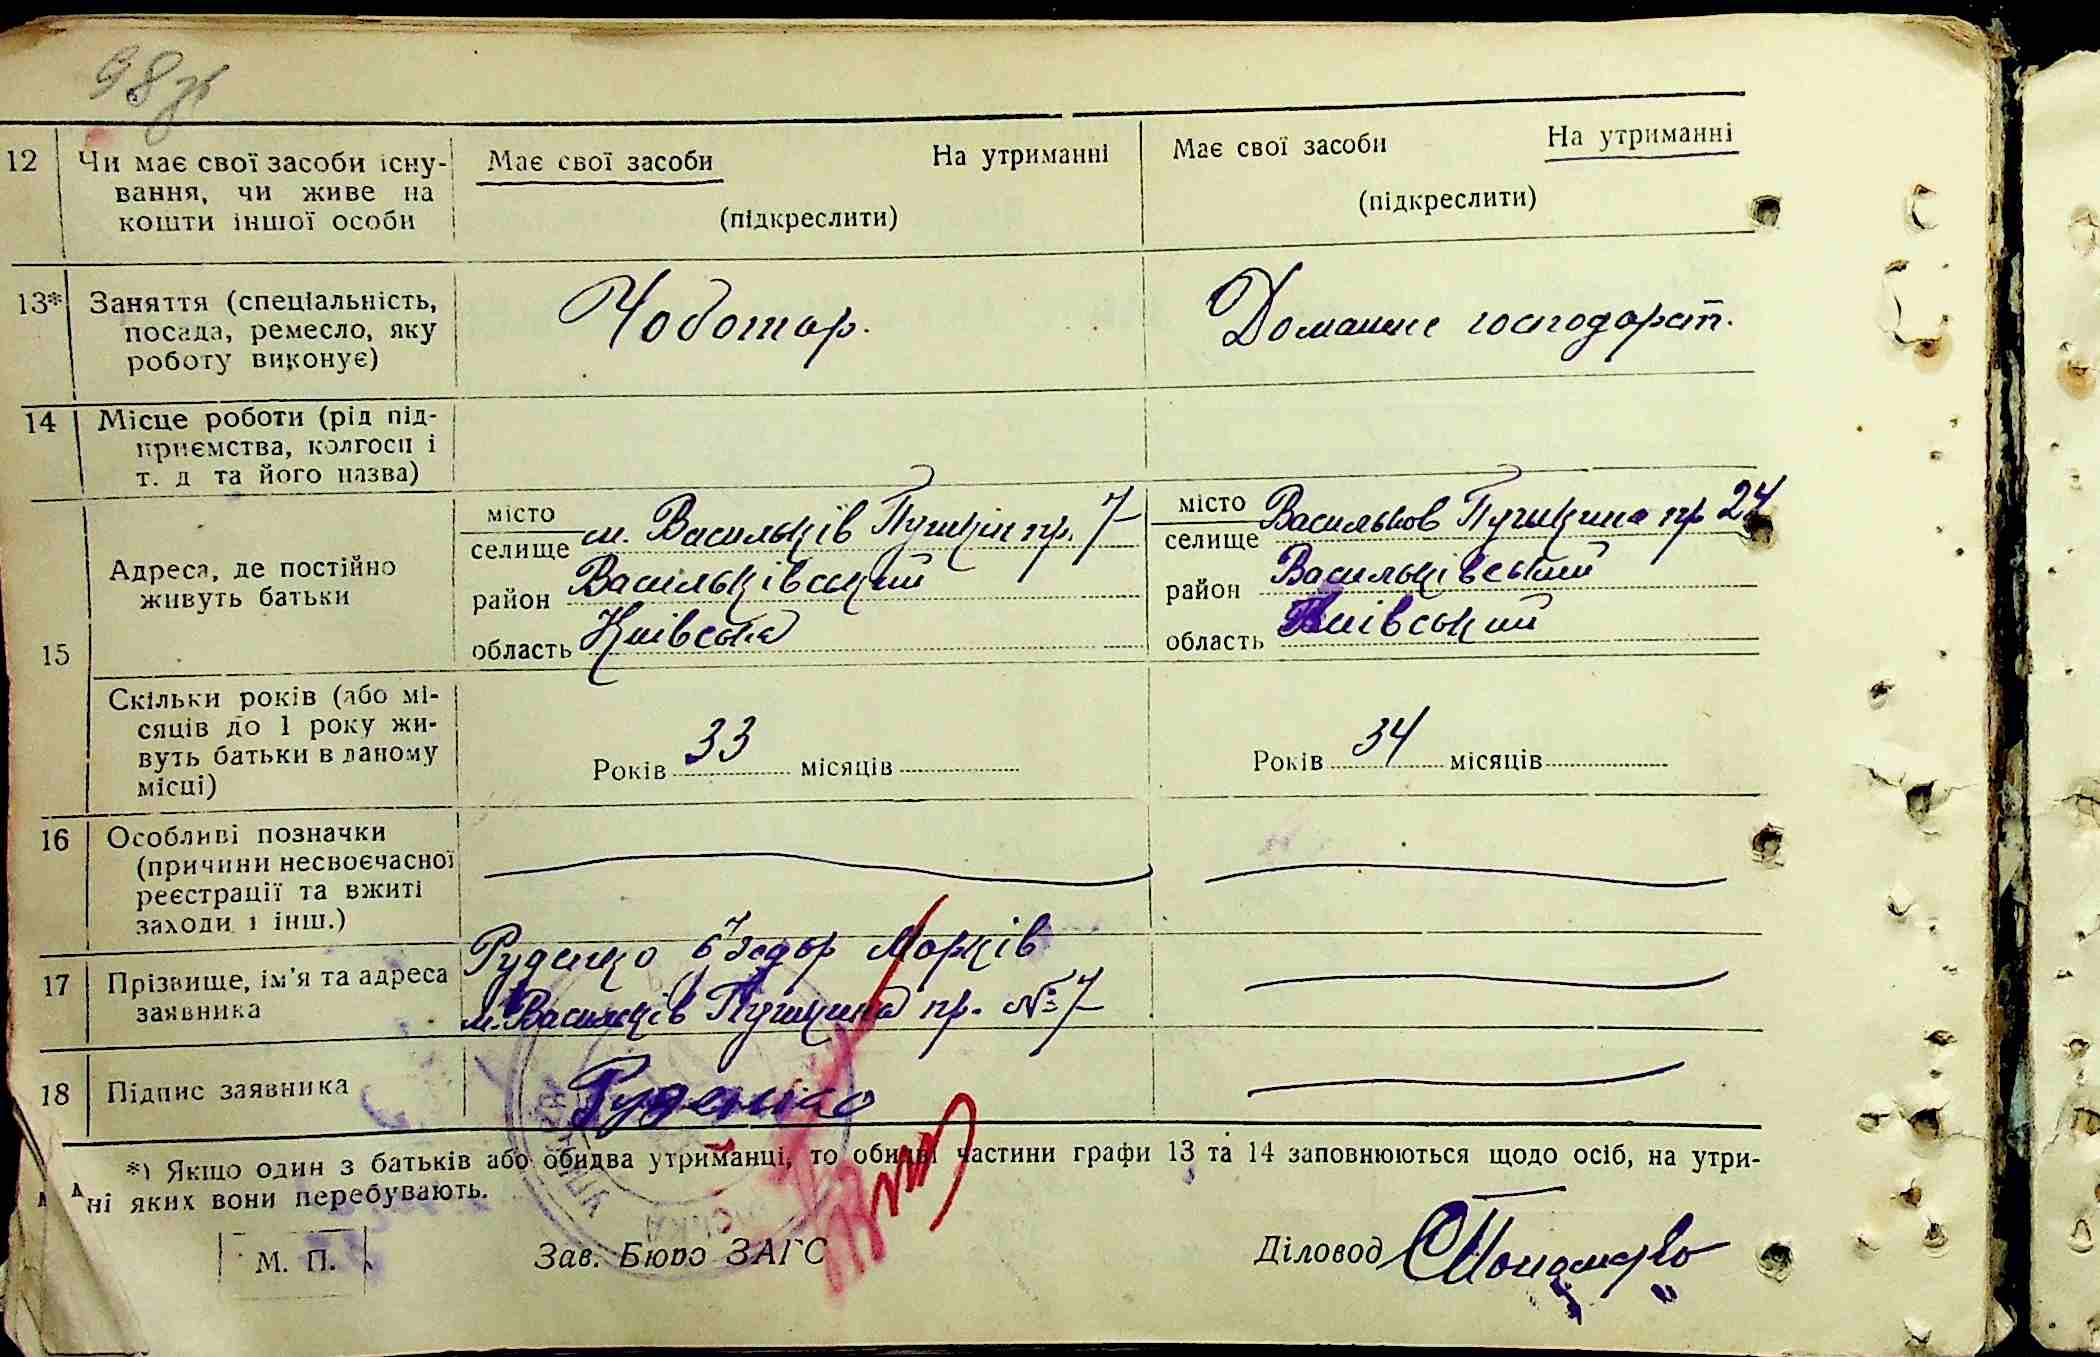 98
12 Чи має свої засоби існу-
вання, чи живе на
кошти іншої особи
Має свої засоби На утриманні
(підкреслити)
Має свої засоби На утриманні
(підкреслити)
13* Заняття (спеціальність,
посада, ремесло, яку
роботу виконує)
Чоботар.
Домашнє господарст.
14 Місце роботи (рід під-
приємства, колгосп і
т. д та його назва)
15
Адреса, де постійно
живуть батьки
місто
селище м. Васильків Пушкін пр. 7
район Васильківський
область Київська
місто
селище Васильков Пушкина пр 24
район Васильківський
область Київський
Скільки років (або мі-
сяців до 1 року жи-
вуть батьки в даному
місці)
Років 33 місяців
Років 34 місяців
16 Особливі позначки
(причини несвоєчасної
реєстрації та вжиті
заходи і інш.)
17 Прізвище, ім'я та адреса
заявника
Руденко Федор Марків
м. Васильків Пушкина пр. № 7
18 Підпис заявника
Руденко
*) Якщо один з батьків або обидва утриманці, то обидві частини графи 13 та 14 заповнюються щодо осіб, на утри-
ні яких вони перебувають.
М. П.
Зав. Бюро ЗАГС
Діловод